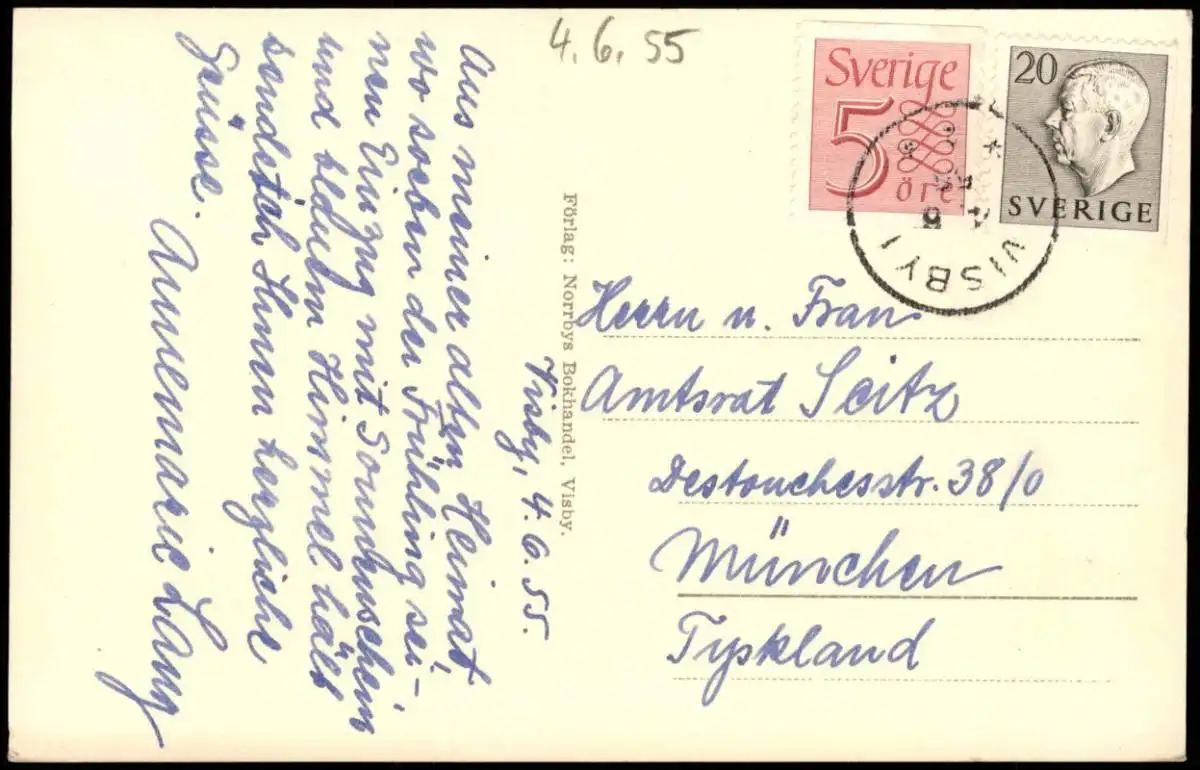 4.6.55
Sverige
5
öre
20
SVERIGE
VISBY 1
Förlag: Norrbys Bokhandel, Visby.
Visby, 4.6.55.
Aus meiner alten Heimat,
wo soeben der Frühling sei-
nen Einzug mit Sonnenschein
und blauem Himmel hält
sendet ich Ihnen herzliche
Grüsse.
Annemarie Lang
Herrn u. Frau
Amtsrat Seitz
Destouchesstr. 38/0
München
Tyskland